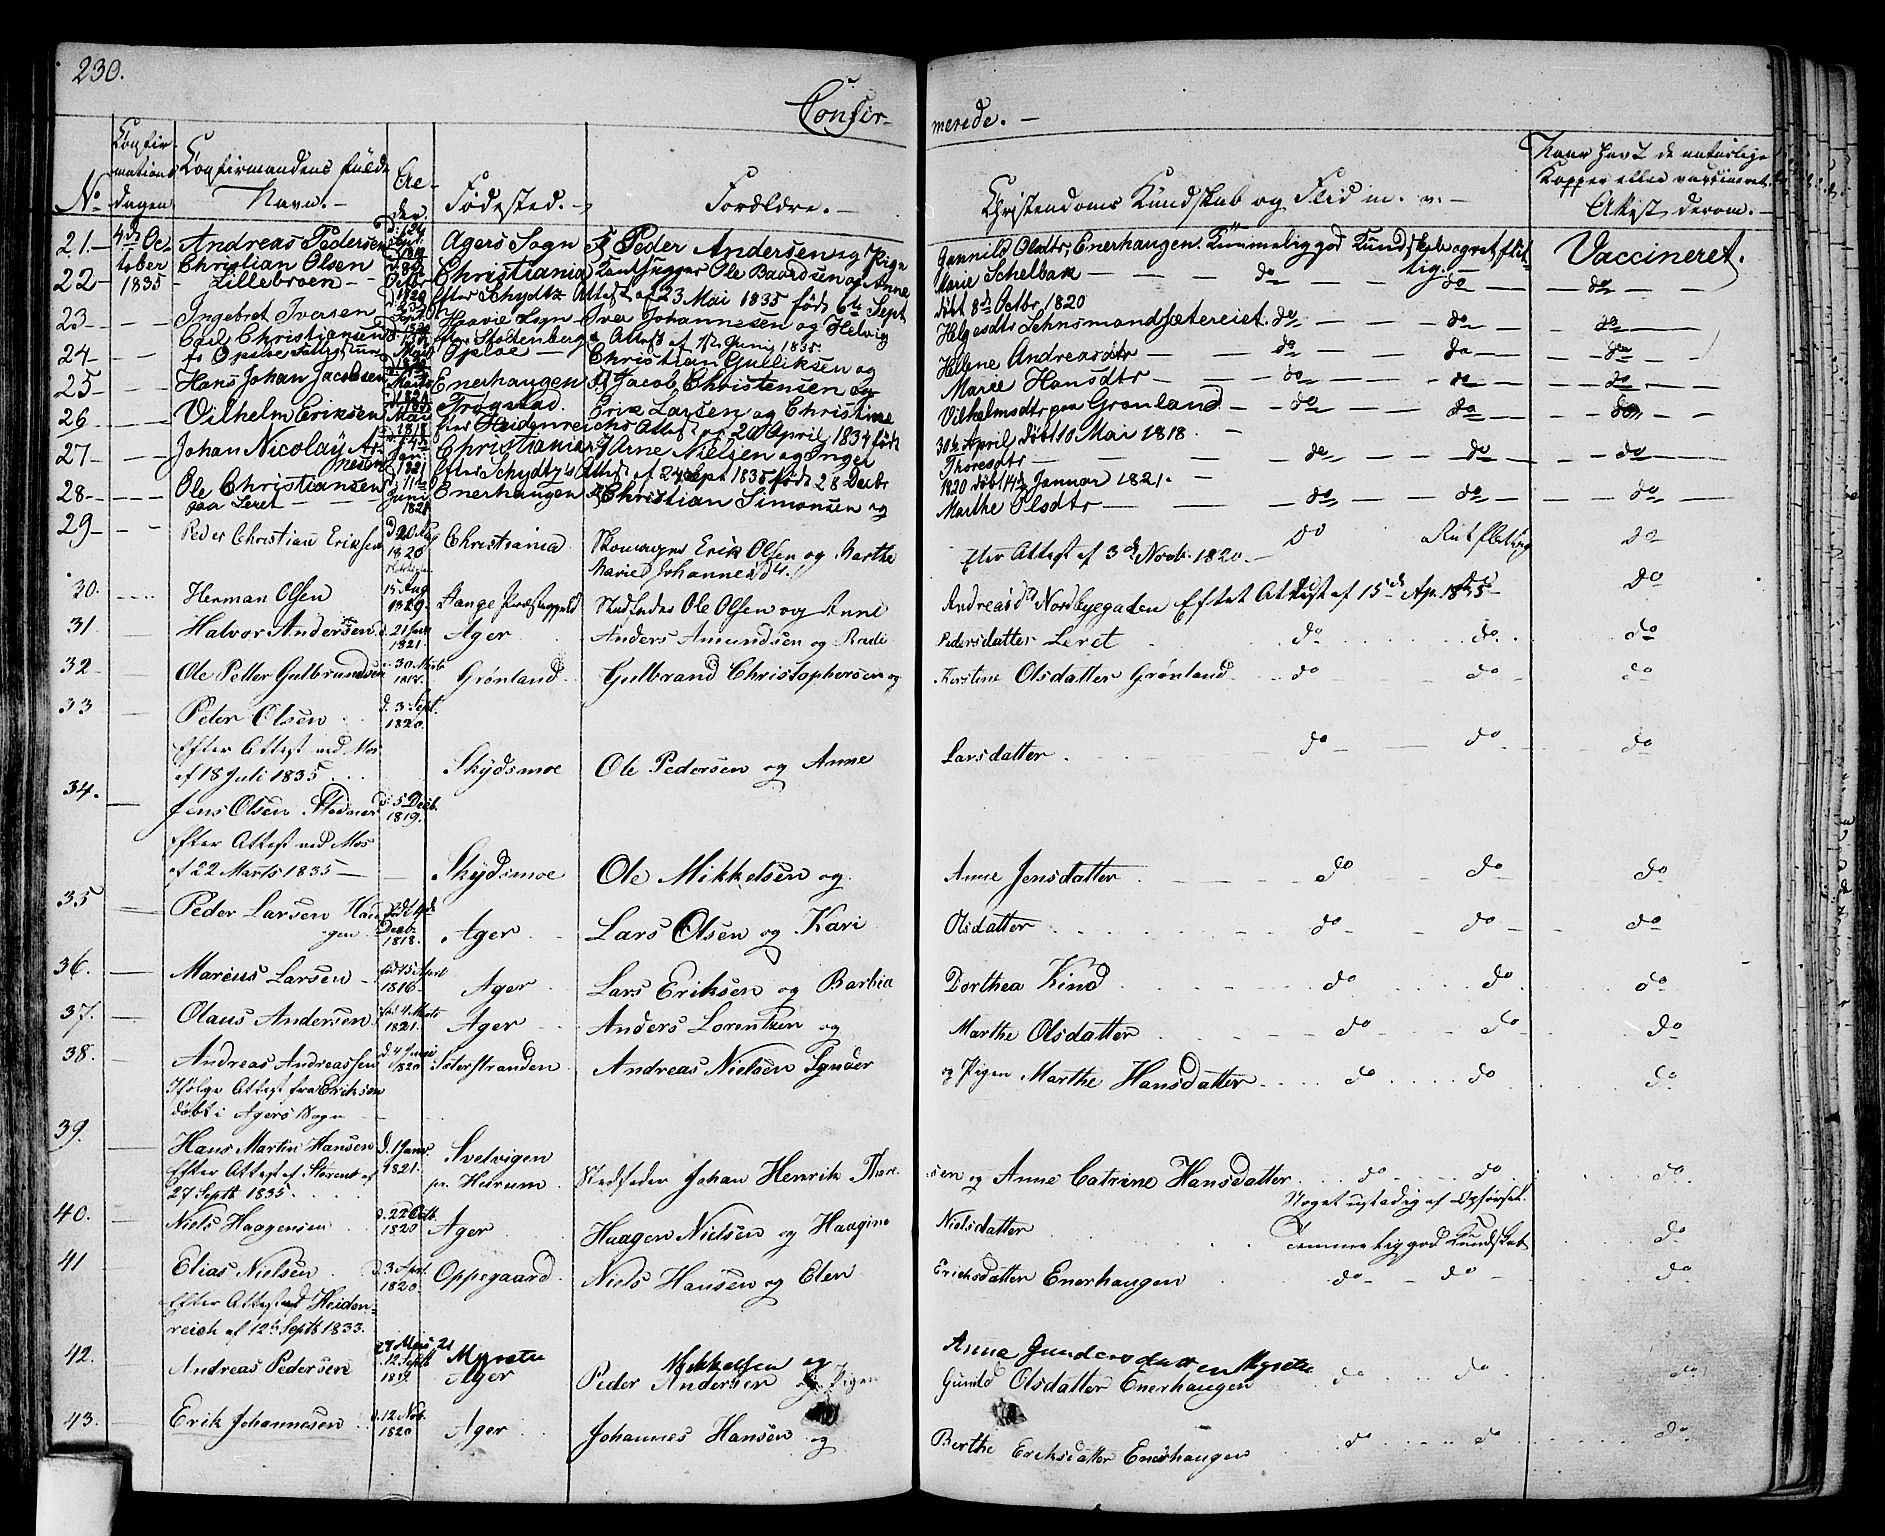 230.
Confir-
merede. -
No
Confir-
mations
dagen
Confirmandens fulde
Navn. -
Al-
der.
Fødested. -
Forældre. -
Christendoms Kundskab og Flid m. v. -
Naar havt de naturlige
Kopper eller vaccineret.
Attest derom. -
21 - 4de Oc- Andreas Pedersen Agers Sogn F. Peder Andersen og Pige Gunnild Olsdtr, Enerhaugen. Kummelig god Kundskab og ret flit- Vaccineret.
22 - tober Christian Olsen Christiania Ole Baardsen og Anne Marie Schelbak - - - do lig. - do do
1835 - Lillebroen - Octbr 1820 efter Schydtz Attest af 23 Mai 1835 født 6te Sept døbt 8de Octbr. 1820
23 - - - Ingebret Iversen Sogn Iver Johannesen og Helvig Helgesdtr Lehnsmandsætereiet. do - - do - - do
24 - - - Carl Christiansen efter Stoltenbergs Attest af 12 Juni 1835.
Oploe - Christian Gulliksen og Helene Andreasdtr - - - do - - do - - do
25 - - - Hans Johan Jacobsen Enerhaugen F. Jacob Christensen og Marie Hansdtr - - - do - - do - - do
26 - - - Vilhelm Eriksen Trøgstad. Erik Larsen og Christine Vilhelmsdtr paa Grønland. - do - - do - - do
1818 efter Heidenreichs Attest af 20 April 1834 født 30te April døbt 10 Mai 1818. -
27 - - - Johan Nicolay Ar- Christiania F Arne Nielsen og Inger Thoresdtr - - - do - - do - - do
nesen 1821 efter Schydtz's Attest af 24 Sept 1835 født 28 Decbr 1820 døbt 14de Januar 1821. -
28 - - - Ole Christiansen Enerhaugen F Christian Simonsen og Marthe Olsdtr - - - do - - do - - do
paa Leret Juni 1821
29 - - - Peder Christian Eriksen 1820 Christiania Skomager Erik Olsen og Berthe do Ret flittig do
Marie Johannesd. Efter Attest af 3de Novb. 1820 -
30. Herman Olsen 15 Aug 1820. Stedfader Ole Olsen og Anne Andreasd. Nordbyegaden Efter Attest af 15de Ap. 1835 do
31 Halvor Andersen d. 21 1821. Ager Anders Amundsen og Pedersdatter Leret. do do. do
32 - Ole Petter Gulbrandsen 30 Grønland Gulbrand Christophersen og Kerstine Olsdatter Grønland do do do
33 - Peder Olsen d. 3 Sept. 1820.
Efter Attest ved Mos
af 18 Juli 1835 Skydsmoe Ole Pedersen og Anne Larsdatter do - do do
34. - Jens Olsen d. 5 Decb. 1819.
Efter Attest ved Mos
af 22 Marts 1835 - Skydsmoe Ole Mikkelsen og Anne Jensdatter - do do do
35 - Peder Larsen Hau- født 4de
gen Decb. 1818. Ager Lars Olsen og Kari Olsdatter do do do
36. - Marcus Larsen - 15 April 1816 Ager Lars Eriksen og Barbra Dorthea Kind do do do
37. - Olaus Andersen 4 Marts 1821. Ager Anders Lorentzen og Marthe Olsdatter do do do
38. - Andreas Andreassen d. 4 Juni 1820 Andreas Nielsen og Pigen Marthe Hansdatter do do do
Ifølge Attest fra Eriksen
døbt i Agers Sogn
39. - Hans Martin Hansen d. 1 Janr. 1821. Svelvigen
Efter Attest af pr. Hurum Stedfader Johan Henrik Thore- sen og Anne Catrine Hansdatter do do do
27 Septb 1835. Noget ustadig af Opførsel.
40. - Niels Haagensen d. 22 Octb. 1820 Ager Haagen Nielsen og Haagine Nielsdatter Temmelig god Kundskab do
41 Elias Nielsen d. 3 April. 1820 Oppegaard Niels Hansen og Elen Erichsdatter Enerhaugen do do do
Efter Attest ved Heiden-
reich af 12te Septb 1833.
27 Mai 21 Myreten Mikkelsen og Anna Gundersdatter Myreten
42. Andreas Pedersen d. 12 Septb 1819 Ager Peder Andersen og Pigen Gunild Olsdatter Enerhaugen do do do
43. - Erik Johannesen d. 12 Nov. 1820 Ager Johannes Hansen og Berthe Eriksdatter Enerhaugen do do do